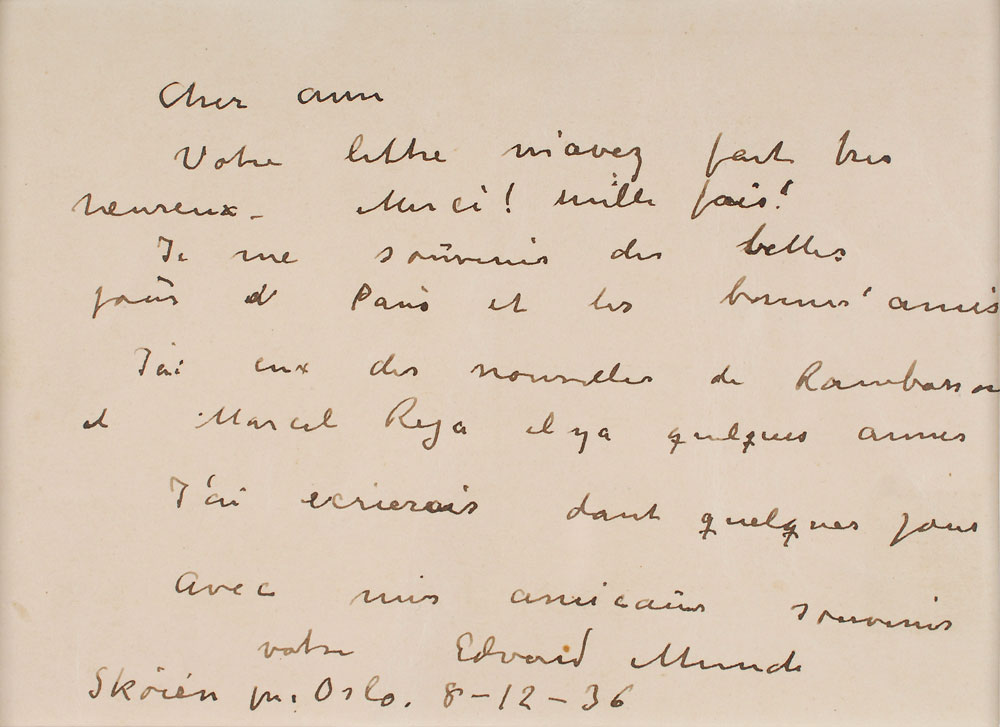 Cher ami
Votre lettre m'avez fait tres
heureux - Merci! mille fois!
Je me souvenir des belles
jours d Paris et les bonnes amis
J'ai eux des nouvelles de
et Marcel Reja il ya quelques annes
J'ai ecrierais dant quelques jours
avec mis amicaux souvenirs
votre Edvard Munch
Skøien pr. Oslo. 8-12-36